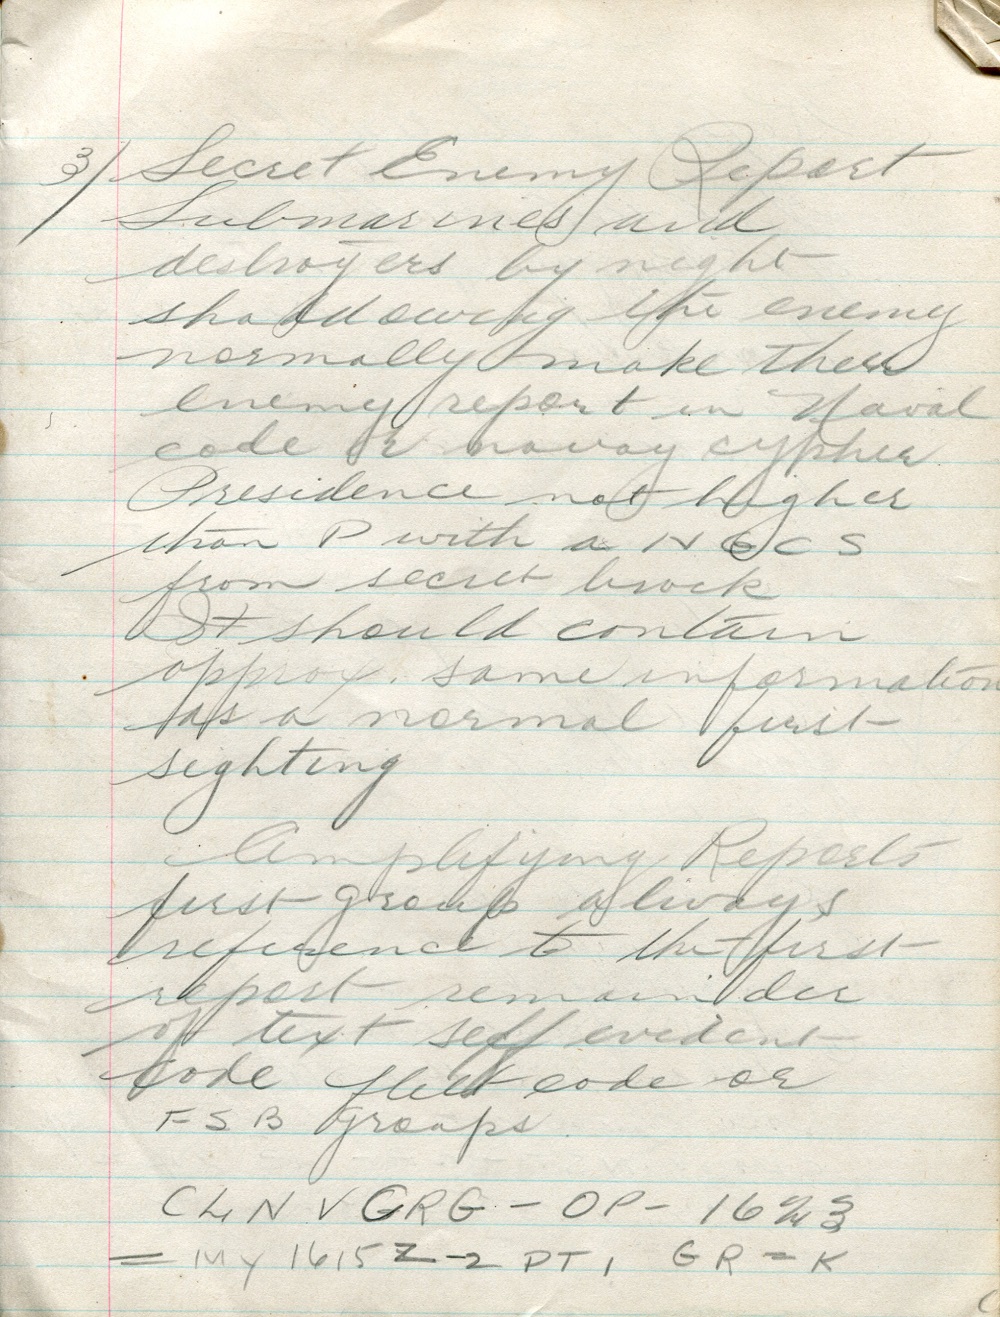 3) Secret Enemy Report
Submarines and
destroyers by night
shaddowing the enemy
normally make their
enemy report in Naval
code or navay cypher
Presidence not higher
than P with a N G C S
from secret brock
It should contain
approx. same information
as a normal first
sighting
Amplifying Reports
first group always
reference to the first
report remainder
of text self evident
code fleet code or
F S B groups
V GRG - OP - 16
= My 1615 Z - 2 PT 1 GR = K